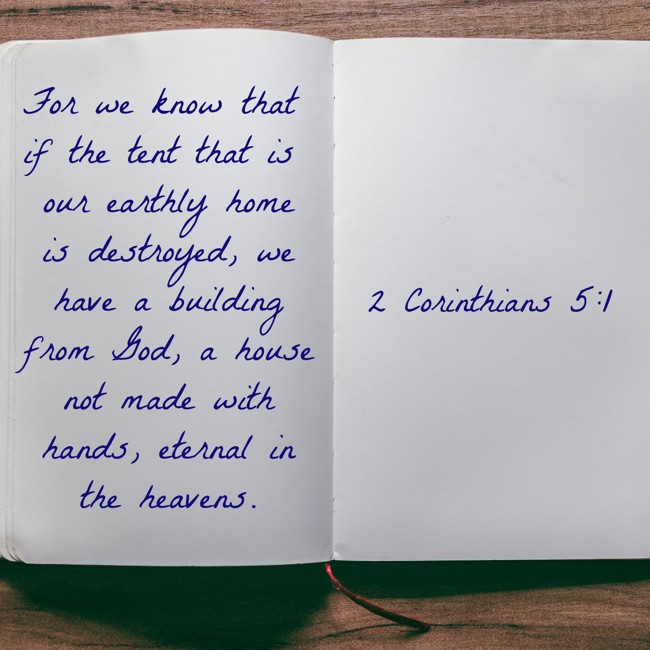 For we know that
if the tent that is
our earthly home
is destroyed, we
have a building
from God, a house
not made with
hands, eternal in
the heavens.
2 Corinthians 5:1